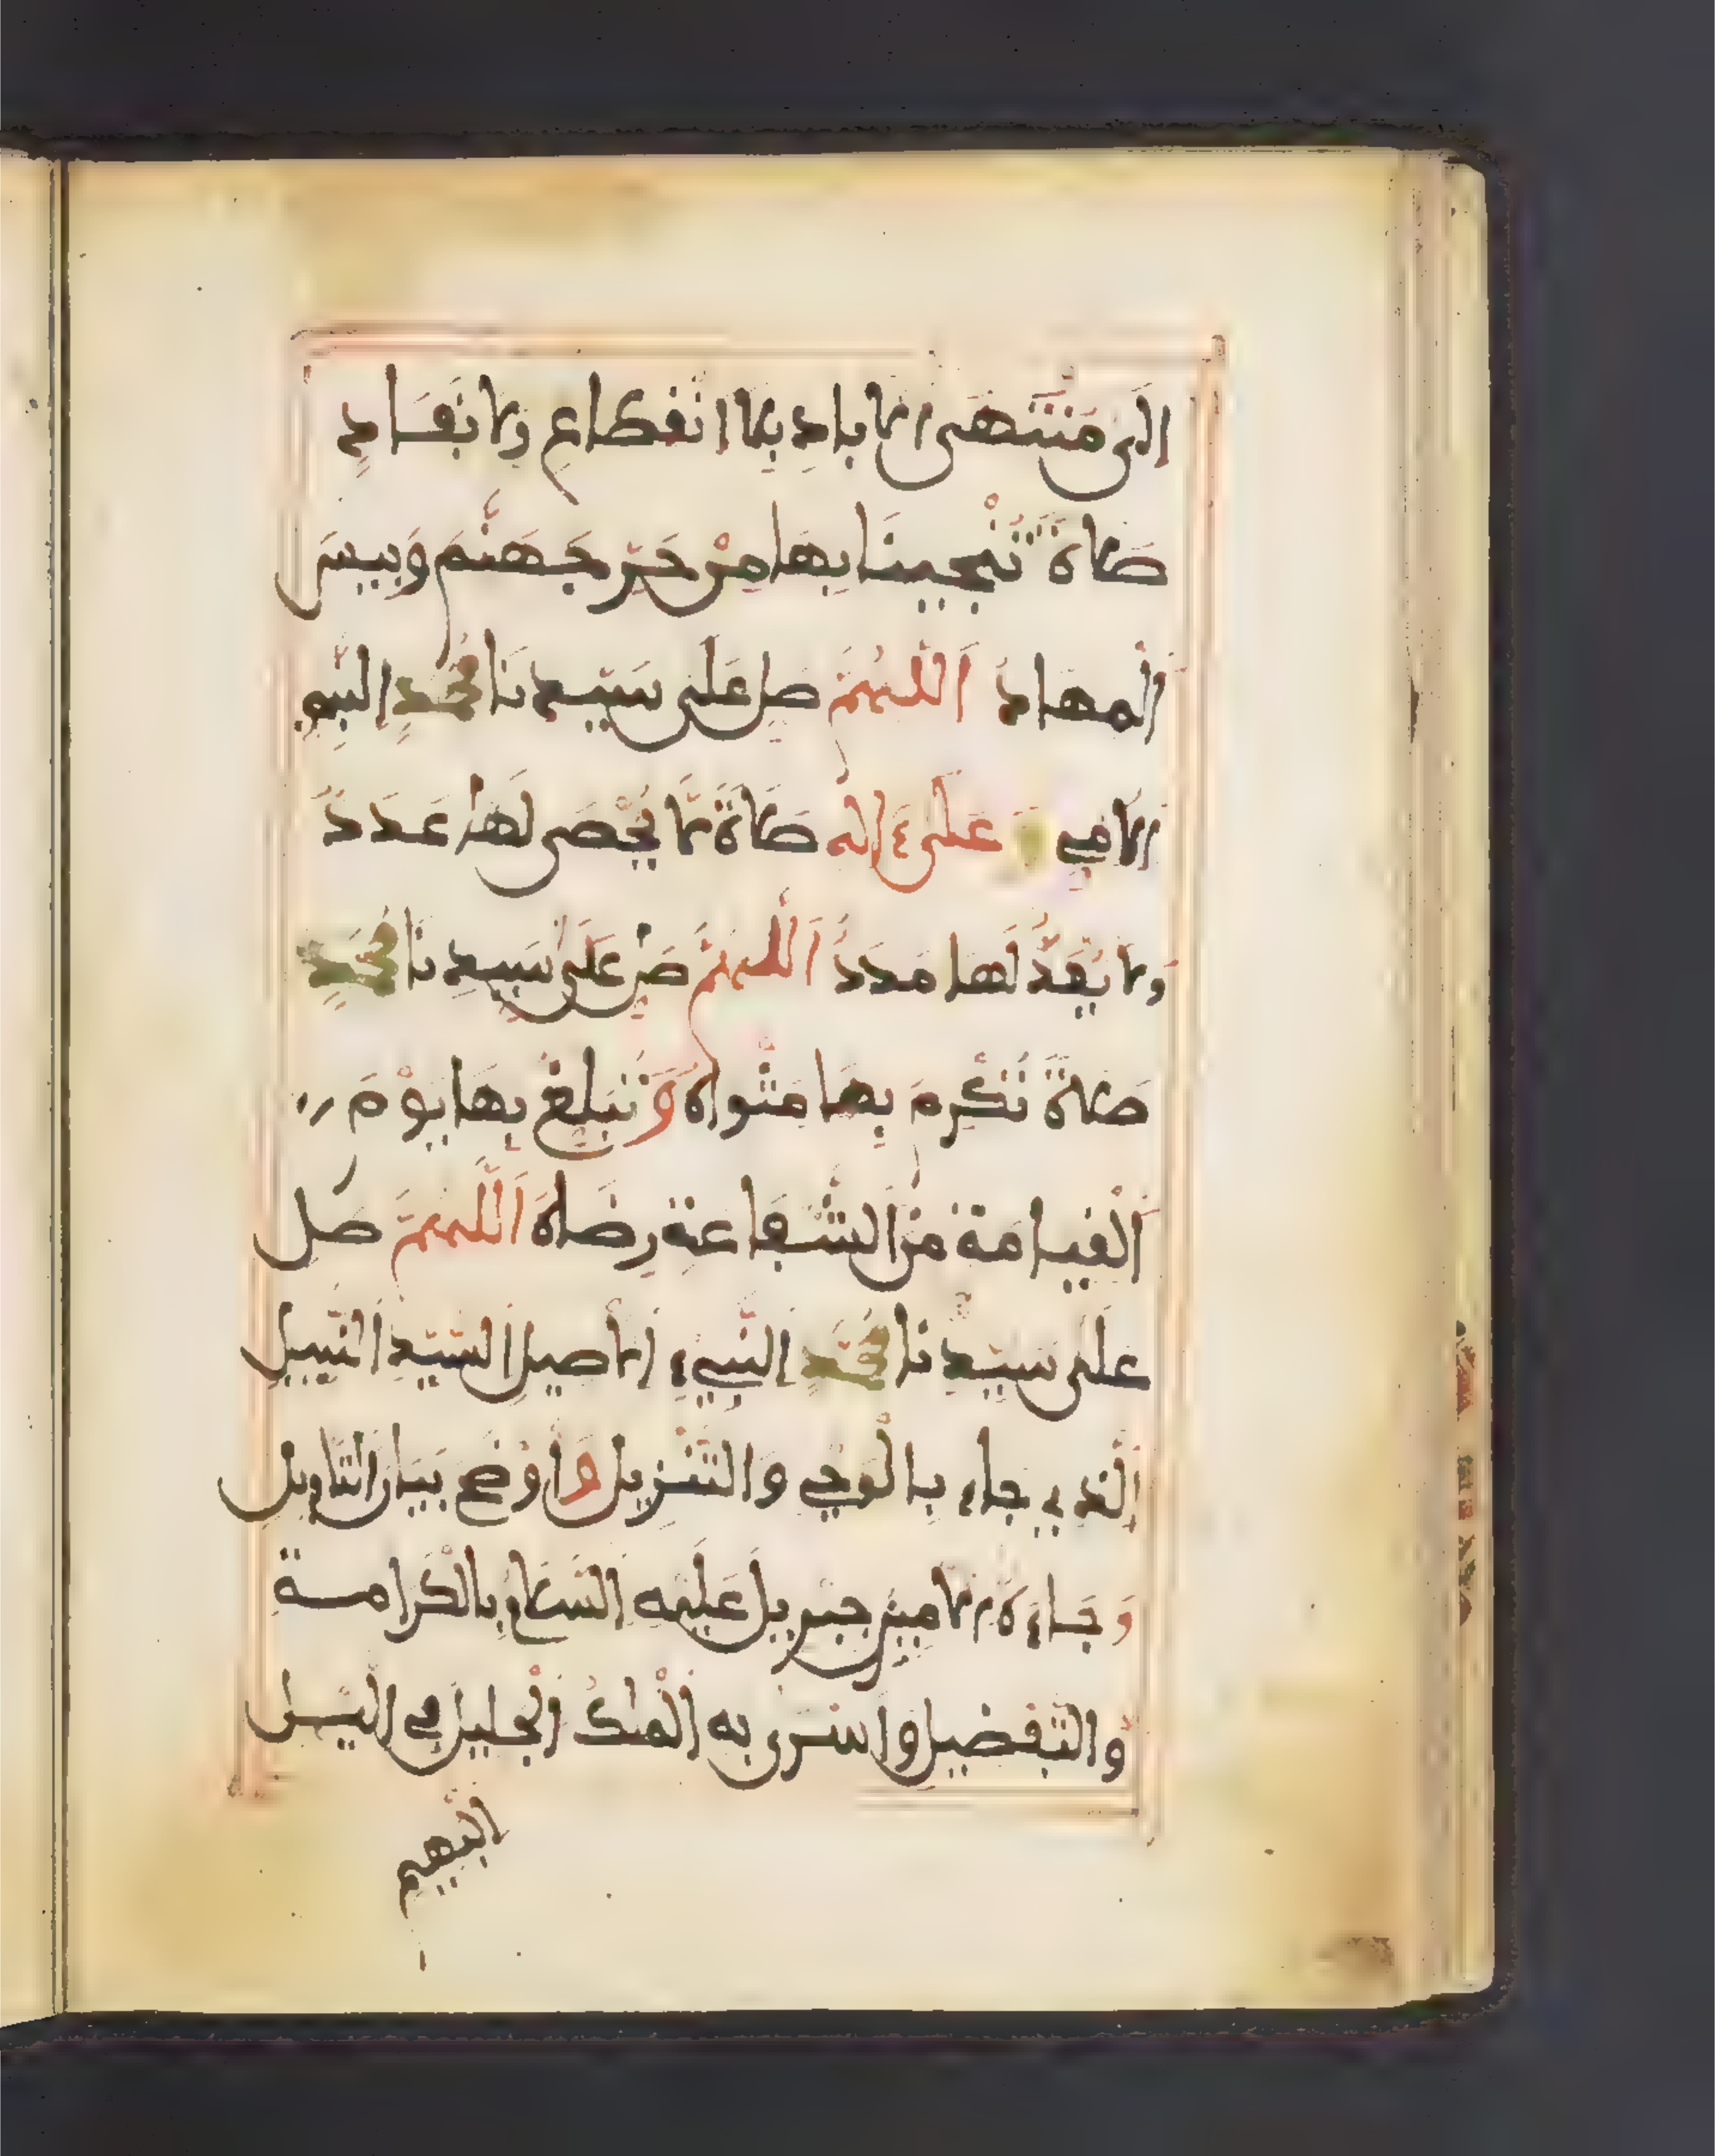 إلى منتهى الاباد بلا انفطاع ولا نفاد
صلاة تنجينا بها من حر جهنم وبيس
المهاد اللهم صل على سيدنا محمد النبي
الامي وعلى ءاله صلاة لا يحصى لها عدد
ولا يعد لها مدد اللهم صل على سيدنا محمد
صلاة تكرم بها مثواه وتبلغ بها يوم
القيامة من الشفاعة رضاه اللهم صل
على سيدنا محمد النبيء الاصيل السيد النبيل
الذي جاء بالوحي والتنزيل وأوضح بيان التاويل
وجاءه الامين جبريل عليه السلام بالكرامة
والتفضيل واسرى به الملك الجليل في اليل
البهيم